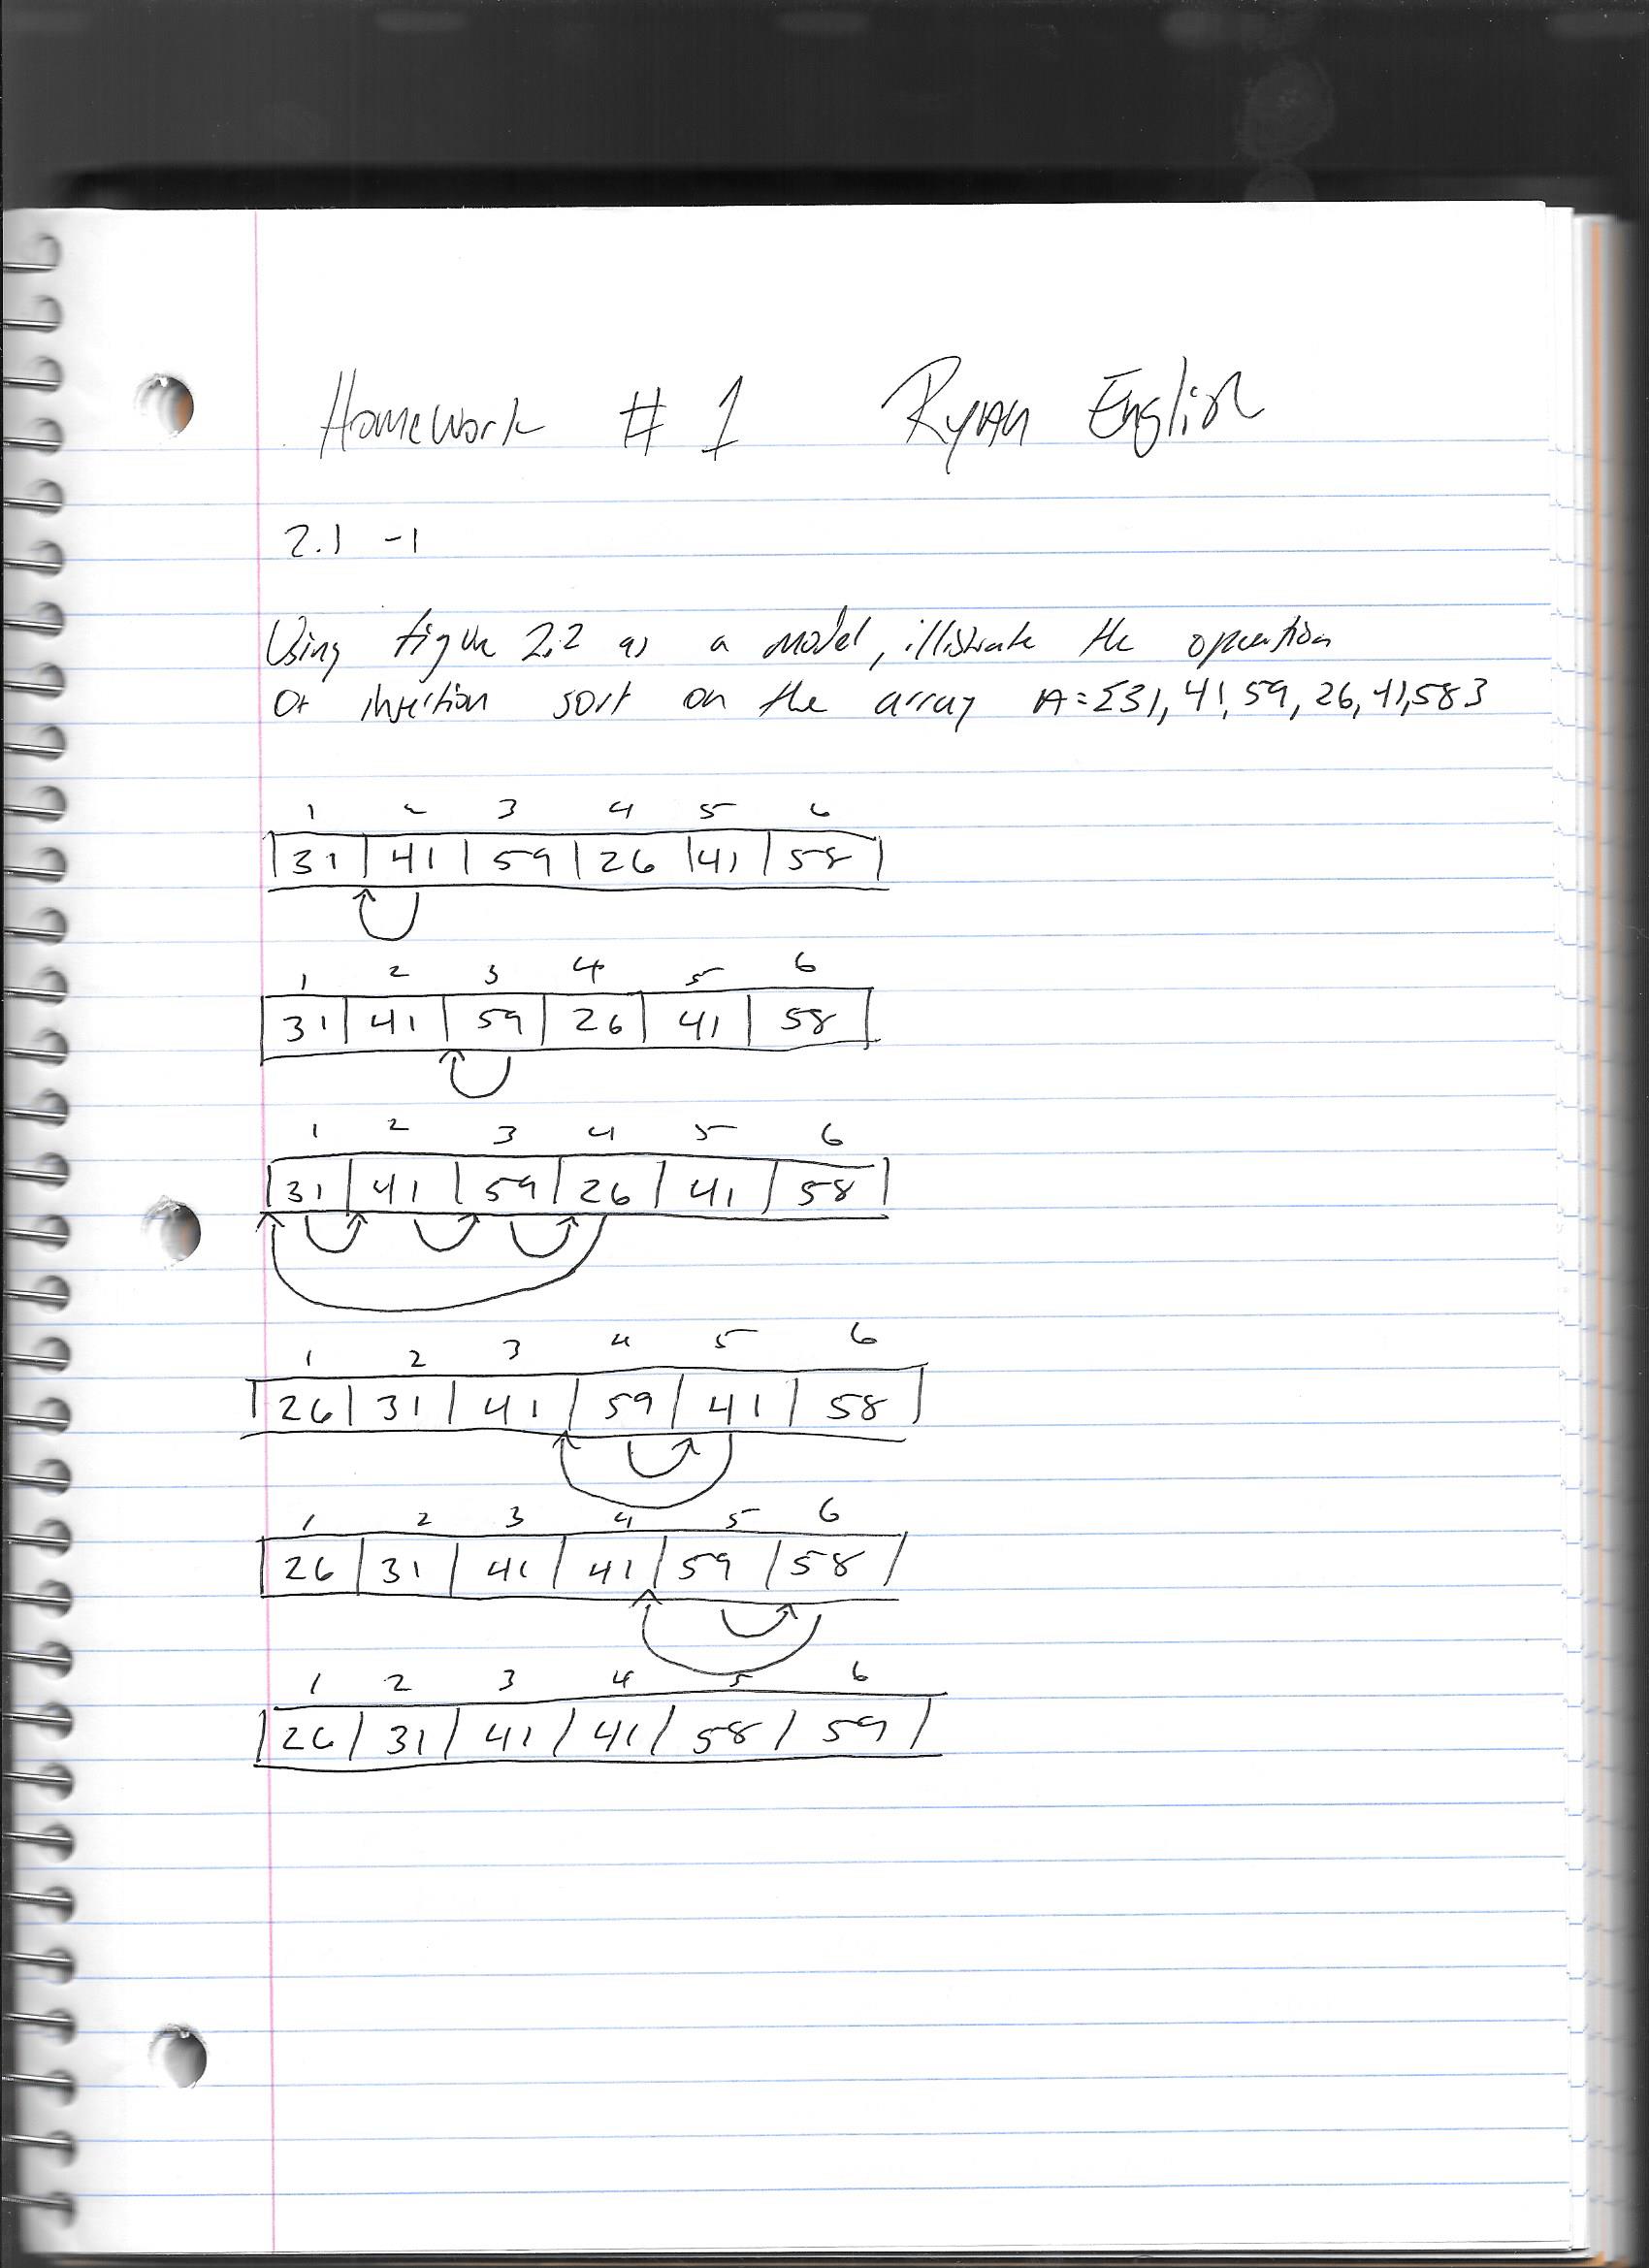 Homework # 1 Ryan English
2.1 -1
Using figure 2.2 as a model, illistrate the operation
of insertion sort on the array A={31, 41, 59, 26, 41, 58}
1 2 3 4 5 6
31 41 59 26 41 58
1 2 3 4 5 6
31 41 59 26 41 58
1 2 3 4 5 6
31 41 59 26 41 58
1 2 3 4 5 6
26 31 41 59 41 58
1 2 3 4 5 6
26 31 41 41 59 58
1 2 3 4 5 6
26 31 41 41 58 59